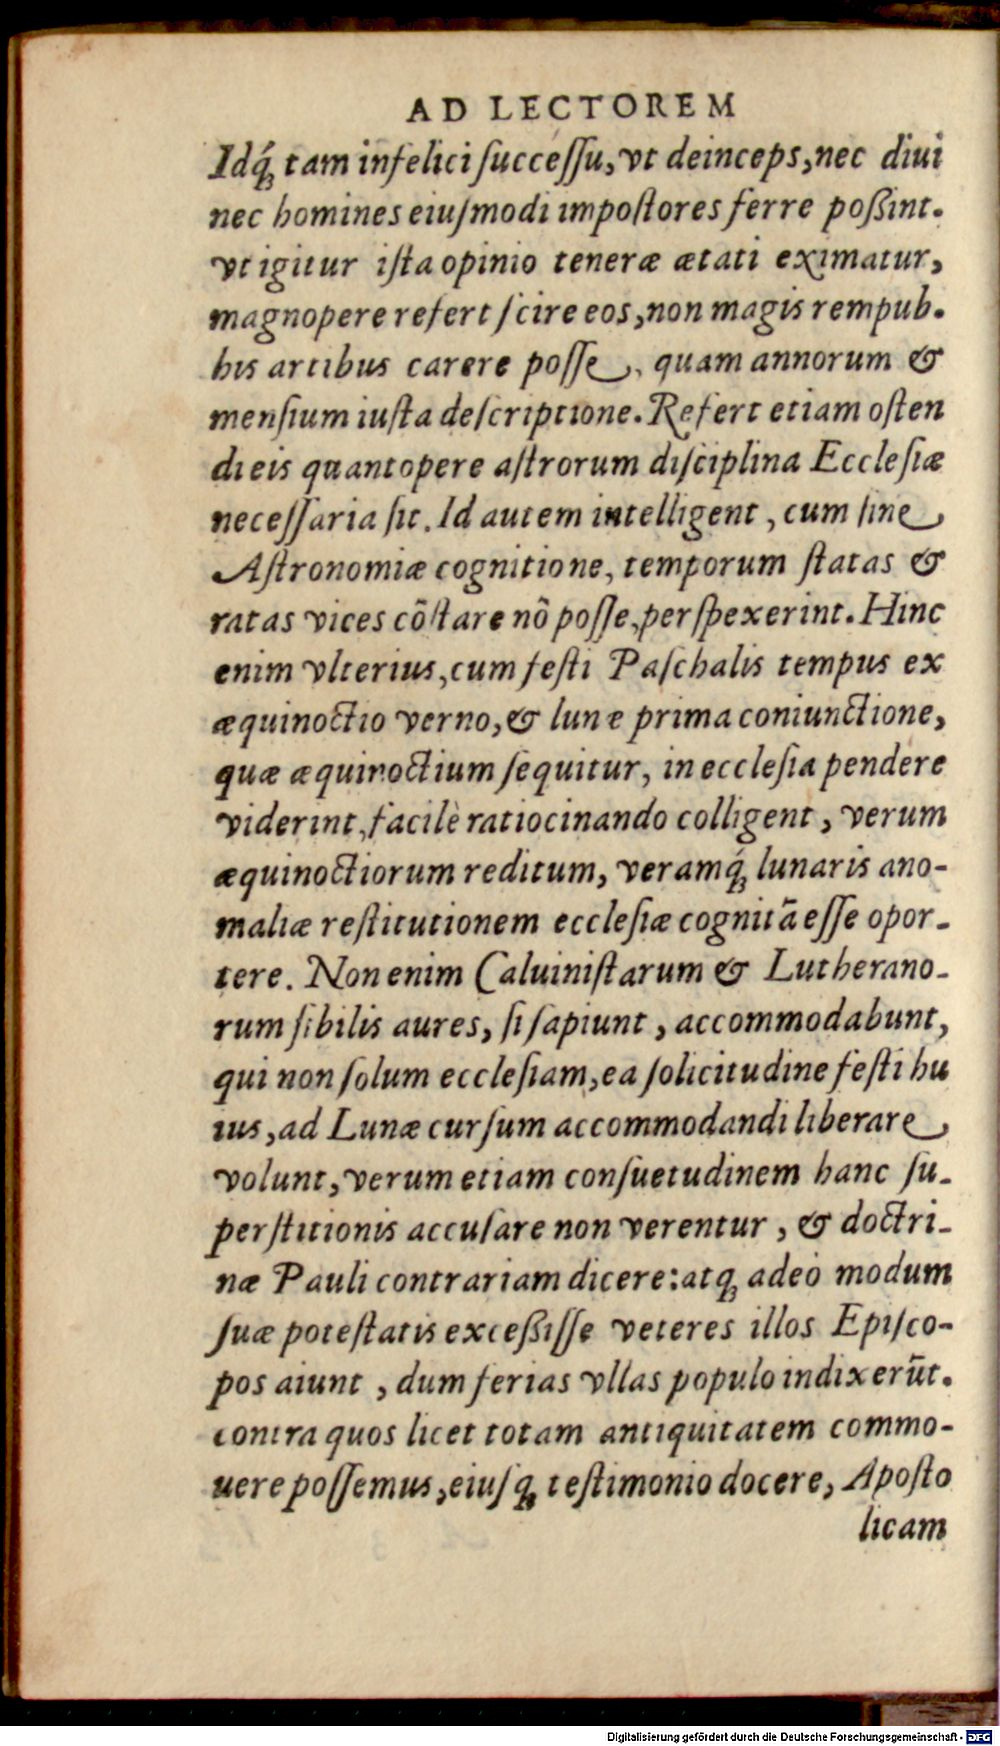 AD LECTOREM
Idq́ꝫ tam infelici ſucceſſu, vt deinceps, nec diui
nec homines eiuſmodi impoſtores ferre poßint.
vt igitur iſta opinio teneræ ætati eximatur,
magnopere refert ſcire eos, non magis rempub.
his artibus carere poſſe, quam annorum &
menſium iuſta deſcriptione. Refert etiam oſten
di eis quantopere aſtrorum diſciplina Eccleſiæ
neceſſaria ſit. Id autem intelligent, cum ſine
Aſtronomiæ cognitione, temporum ſtatas &
ratas vices cõſtare nõ poſſe, perſpexerint. Hinc
enim vlterius, cum feſti Paſchalis tempus ex
æquinoctio verno, & lunæ prima coniunctione,
quæ æquinoctium ſequitur, in eccleſia pendere
viderint, facilè ratiocinando colligent, verum
æquinoctiorum reditum, veramq́ꝫ lunaris ano-
maliæ reſtitutionem eccleſiæ cognitã eſſe opor-
tere. Non enim Caluiniſtarum & Lutherano-
rum ſibilis aures, ſi ſapiunt, accommodabunt,
qui non ſolum eccleſiam, ea ſolicitudine feſti hu
ius, ad Lunæ curſum accommodandi liberare
volunt, verum etiam conſuetudinem hanc ſu-
perſtitionis accuſare non verentur, & doctri-
næ Pauli contrariam dicere: atqꝫ adeò modum
ſuæ poteſtatis exceßiſſe veteres illos Epiſco-
pos aiunt, dum ferias vllas populo indixerũt.
contra quos licet totam antiquitatem commo-
uere poſſemus, eiuſqꝫ teſtimonio docere, Apoſto
licam
Digitalisierung gefördert durch die Deutsche Forschungsgemeinschaft - DFG